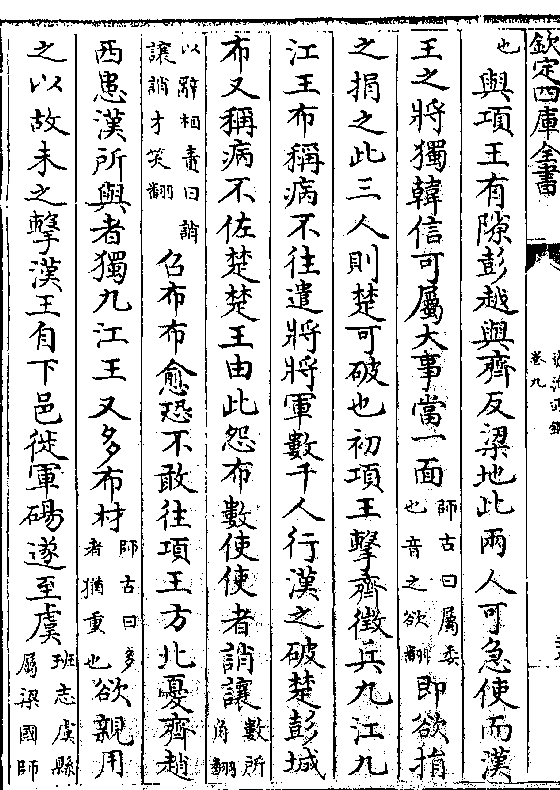 欽定四庫全書
卷九
也與項王有隙彭越與齊反梁地此兩人可急使而漢
王之將獨韓信可屬大事當一面師古曰屬委也音之欲翻即欲捐
之捐之此三人則楚可破也初項王擊齊徵兵九江九
江王布稱病不往遣將將軍數千人行漢之破楚彭城
布又稱病不佐楚楚王由此怨布數使使者誚讓數所角翻
以辭相責曰誚讓誚才笑翻召布布愈恐不敢往項王方北憂齊趙
西患漢所與者獨九江王又多布材師古曰多者猶重也欲親用
之以故未之擊漢王自下邑徙軍碭遂至虞班志虞縣屬梁國師